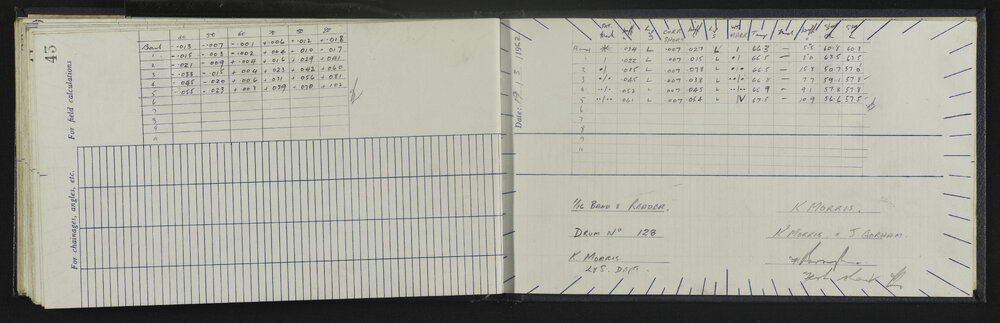 43
For field calculations
For chainages, angles, etc.
40 50 60 70 80 90
Band -.013 -.007 -.001 +.006 +.012 +.018
1 -.015 -.008 -.002 +.004 -.010 +.017
2 -.021 .009 +.004 +.016 +.029 +.041
3 -.033 -.015 +.004 +.023 +.042 +.060
4 .045 -.020 +.006 +.031 +.056 +.081
5 -.055 -.023 +.008 +.039 +.070 +.102
6
7
8
9
10
Date: 19.3.1962
Band .034 L .007 .027 L 1 66.3 — 5.5 60.8 60.8
1 1 .022 L .007 .015 L 66.5 — 5.0
2 .085 L .007 .078 66.5 — 15.8 50.7
3 .045 L .007 .038 — 7.7 59.1 57.8
4 .052 L .007 .045 L — 9.1 57.8 57.8
5 .061 L .007 .054 L IV 67.5 — 10.9 56.6 57.5
6
7
8
9
10
1/16 BAND & READER.
K MORRIS.
DRUM No 128
K MORRIS & J GORHAM.
K MORRIS
L & S. DEPT.